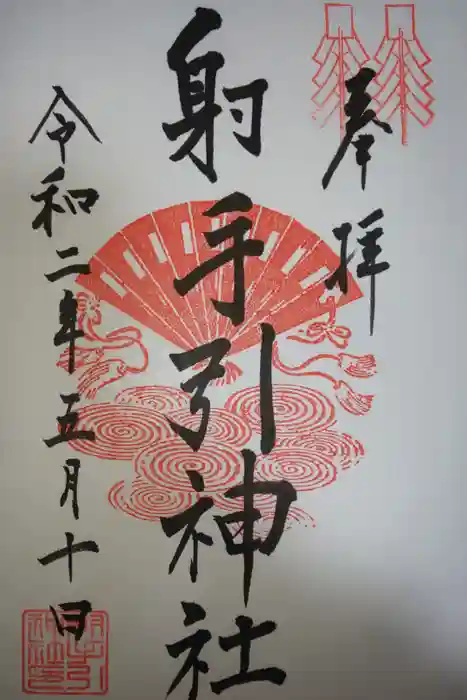 奉拝
射手引神社
令和二年五月十日